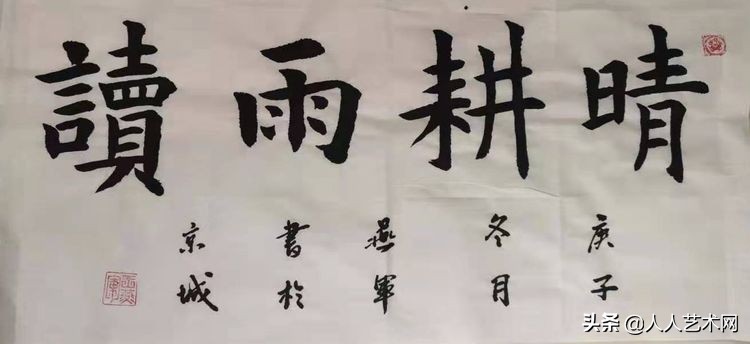 晴耕雨讀
庚子
冬月
燕軍
書於
京城
头条 @人人艺术网